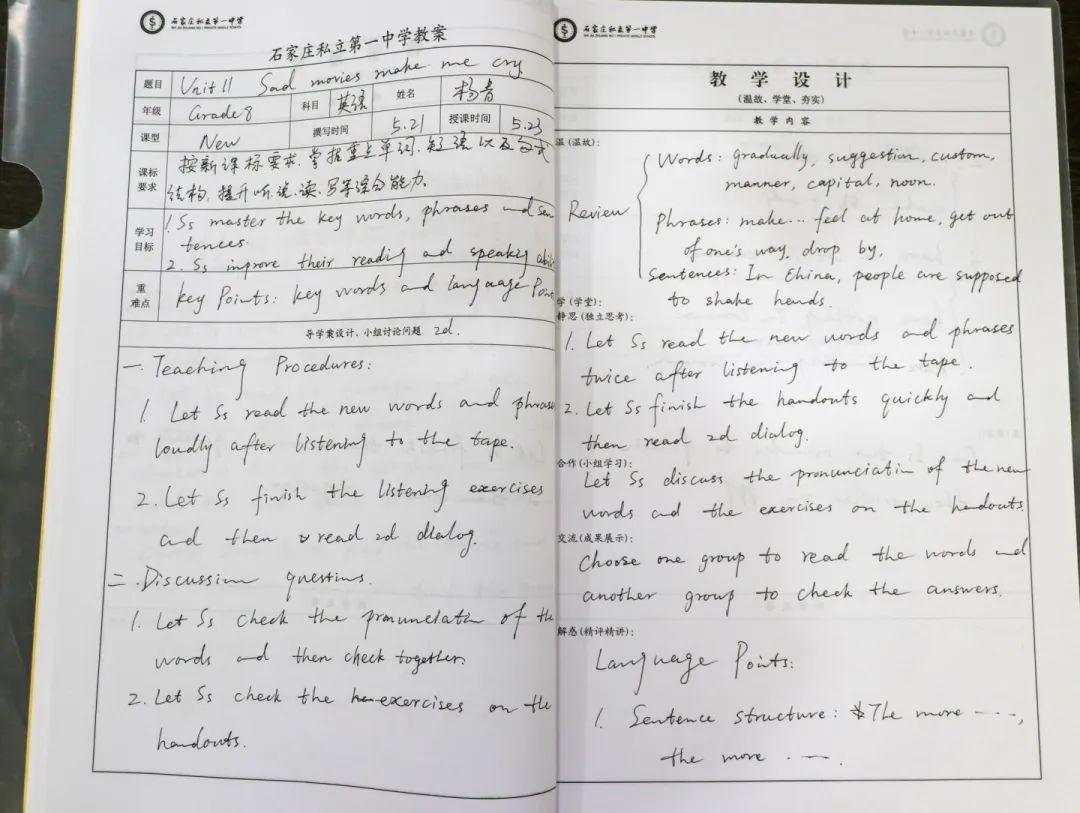 石家庄私立第一中学
石家庄私立第一中学教案
题目 Unit 11 Sad movies make me cry.
年级 Grade 8 科目 英语 姓名 杨青
课型 New 撰写时间 5.21 授课时间 5.23
课标要求 按新课标要求,掌握重点单词、短语以及句式
结构,提升听、说、读、写等综合能力.
学习目标 1. Ss master the key words, phrases and sen
tences.
2. Ss improve their reading and speaking abili
重难点 key Points: key words and language Point
导学案设计、小组讨论问题 2d.
一. Teaching Procedures:
1. Let Ss read the new words and phrase
loudly after listening to the tape.
2. Let Ss finish the listening exercises
and then read 2d dialog.
二. Discussion questions.
1. Let Ss check the pronunciation of the
words and then check together.
2. Let Ss check the exercises on the
handouts.
石家庄私立第一中学
教学设计
(温故、学堂、夯实)
教学内容
温(温故):
Review
Words: gradually, suggestion, custom,
manner, capital, noon.
Phrases: make... feel at home, get out
of one's way, drop by,
Sentences: In China, people are supposed
to shake hands.
学(学堂):
静思(独立思考):
1. Let Ss read the new words and phrases
twice after listening to the tape.
2. Let Ss finish the handouts quickly and
then read 2d dialog.
合作(小组学习):
Let Ss discuss the pronunciation of the new
words and the exercises on the handouts.
交流(成果展示):
Choose one group to read the words and
another group to check the answers.
解惑(精评精讲):
Language Points:
1. Sentence structure: The more ....,
the more ....